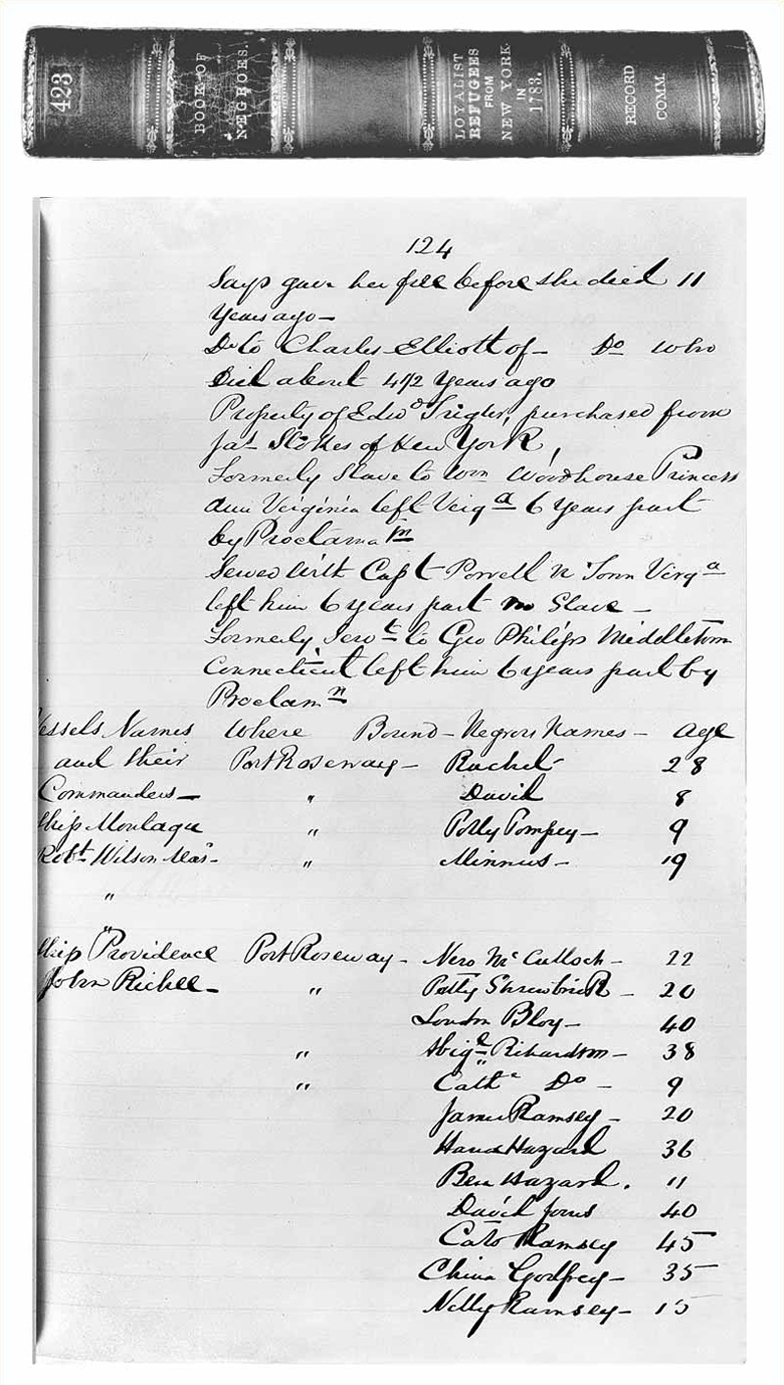 423
BOOK OF
NEGROES.
LOYALIST
REFUGEES
FROM
NEW YORK
IN
1783.
RECORD
COMM.
124
Says gave her free before she died 11
Years ago —
Do to Charles Elliott of — Do who
Died about 4 1/2 Years ago
Property of Edwd Trigler, purchased from
Jas Stokes of New York,
Formerly Slave to Wm Woodhouse Princess
Ann Virginia left Virga 6 Years past
by Proclamatn
Served with Capt Powell N Town Virga
left him 6 years past no Slave —
Formerly Servt to Geo Philips Middletown
Connecticut left him 6 years past by
Proclamn
Vessels Names Where Bound — Negroes Names — Age
and their Port Roseway — Rachel — 28
Commanders — " David 8
Ship Montague " Polly Pompey — 9
Robt Wilson Mas — " Minnus — 19
"
"
Ship Providence Port Roseway — Nero McCulloch — 22
John Richee — " Patty Shrewbrick — 20
London Bloy — 40
" Abigl Richardson — 38
" Cathe Do — 9
James Ramsey — 20
Hazard 36
Ben Hazard. 11
David Jones 40
Cato Ramsey 45
China Godfrey — 35
Nelly Ramsey — 15